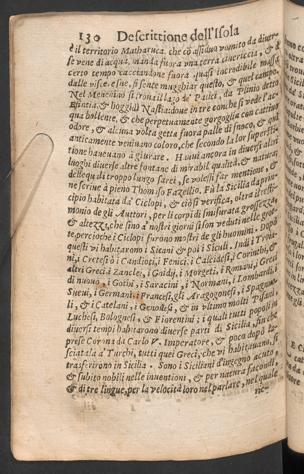 130 Descrittione dell'Isola
è il territorio Matharuca. che cō assiduo vomito da diuer
se vene di acqua, manda fuora vna terra cinericcia, &
certo tempo cacciandone fuora quasi incredibile massa
dalle viscere sue, si sente mugghiar questo, & quel campo.
Nel si troua il lago de' Palici, da Plinio detto
Efintia, & hoggidì Naftia: doue in tre conche si vede l'ac
qua bollente, & che perpetuamente gorgoglia con cattiuo
odore, & alcuna volta getta fuora palle di fuoco, & quì
anticamente veniuano coloro, che secondo la loro superstí
tione haueuano à giurare. Hauui ancora in diuersi altri
luoghi diuerse altre fontane di mirabil qualità, & natura,
delle quali troppo lungo sarei, se volessi far mentione,
ne scriue à pieno Thomaso Fazellio. Fù la Sicilia da prin
cipio habitata da' Ciclopi, & ciò si verifica, oltra il testi
monio de gli Auttori, per li corpi di smisurata grossezza,
& altezza, che sino a' nostri giorni si son veduti nelle grot
te, percioche i Ciclopi furono mostri de gli huomini. Dopò
questi vi habitarono i Sicani & poi i Siculi. Indi i Troia
ni, i Cretesi ò i Candioti, i Fenici, i Calcidesi, i Corinthi, &
altri Greci, i Zanclei, i Gnidij, i Morgeti, i Romani, i Greci
di nuouo, i Gothi, i Saracini, i Normani, i Lombardi, i
Sueui, i Germani, i Francesi, gli Aragonesi, i Spagnuo
li, & i Catelani, i Genouesi, & in vltimo molti Pisani,
Luchesi, Bolognesi, & Fiorentini: i quali tutti popoli in
diuersi tempi habitarono diuerse parti di Sicilia, fin che
prese Corona da Carlo V. Imperatore, & poco dapò la-
sciatala à Turchi, tutti quei Greci, che vi habitauano, si
trasferirono in Sicilia. Sono i Siciliani d'ingegno acuto
& subito nobili nelle inuentioni, & per natura facondi,
& di tre lingue, per la velocità loro nel parlare, nel quale